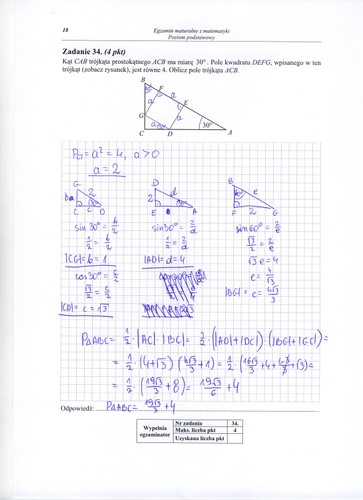 18
Egzamin maturalny z matematyki
Poziom podstawowy
Zadanie 34. (4 pkt)
Kąt CAB trójkąta prostokątnego ACB ma miarę 30°. Pole kwadratu DEFG, wpisanego w ten
trójkąt (zobacz rysunek), jest równe 4. Oblicz pole trójkąta ACB.
B
F
a
a
E
G
a
a
30°
C
D
A
P□ = a² = 4, a > 0
a = 2
G
b
2
C
c
D
D
2
d
E
A
B
e
F
2
G
sin 30° = b/2
1/2 = b/2
|CG| = b = 1
cos 30° = c/2
√3/2 = c/2
|CD| = c = √3
sin 30° = 2/d
1/2 = 2/d
|AD| = d = 4
sin 60° = 2/e
√3/2 = 2/e
√3 e = 4
e = 4/√3
|BG| = e = 4√3/3
P△ABC = 1/2 · |AC| · |BC| = 1/2 · (|AD| + |DC|) · (|BG| + |GC|) =
= 1/2 · (4+√3) · (4√3/3 + 1) = 1/2 · (16√3/3 + 4 + 4·3/3 + √3) =
= 1/2 · (19√3/3 + 8) = 19√3/6 + 4
Odpowiedź: P△ABC = 19√3/6 + 4
Wypełnia
egzaminator
Nr zadania 34.
Maks. liczba pkt 4
Uzyskana liczba pkt